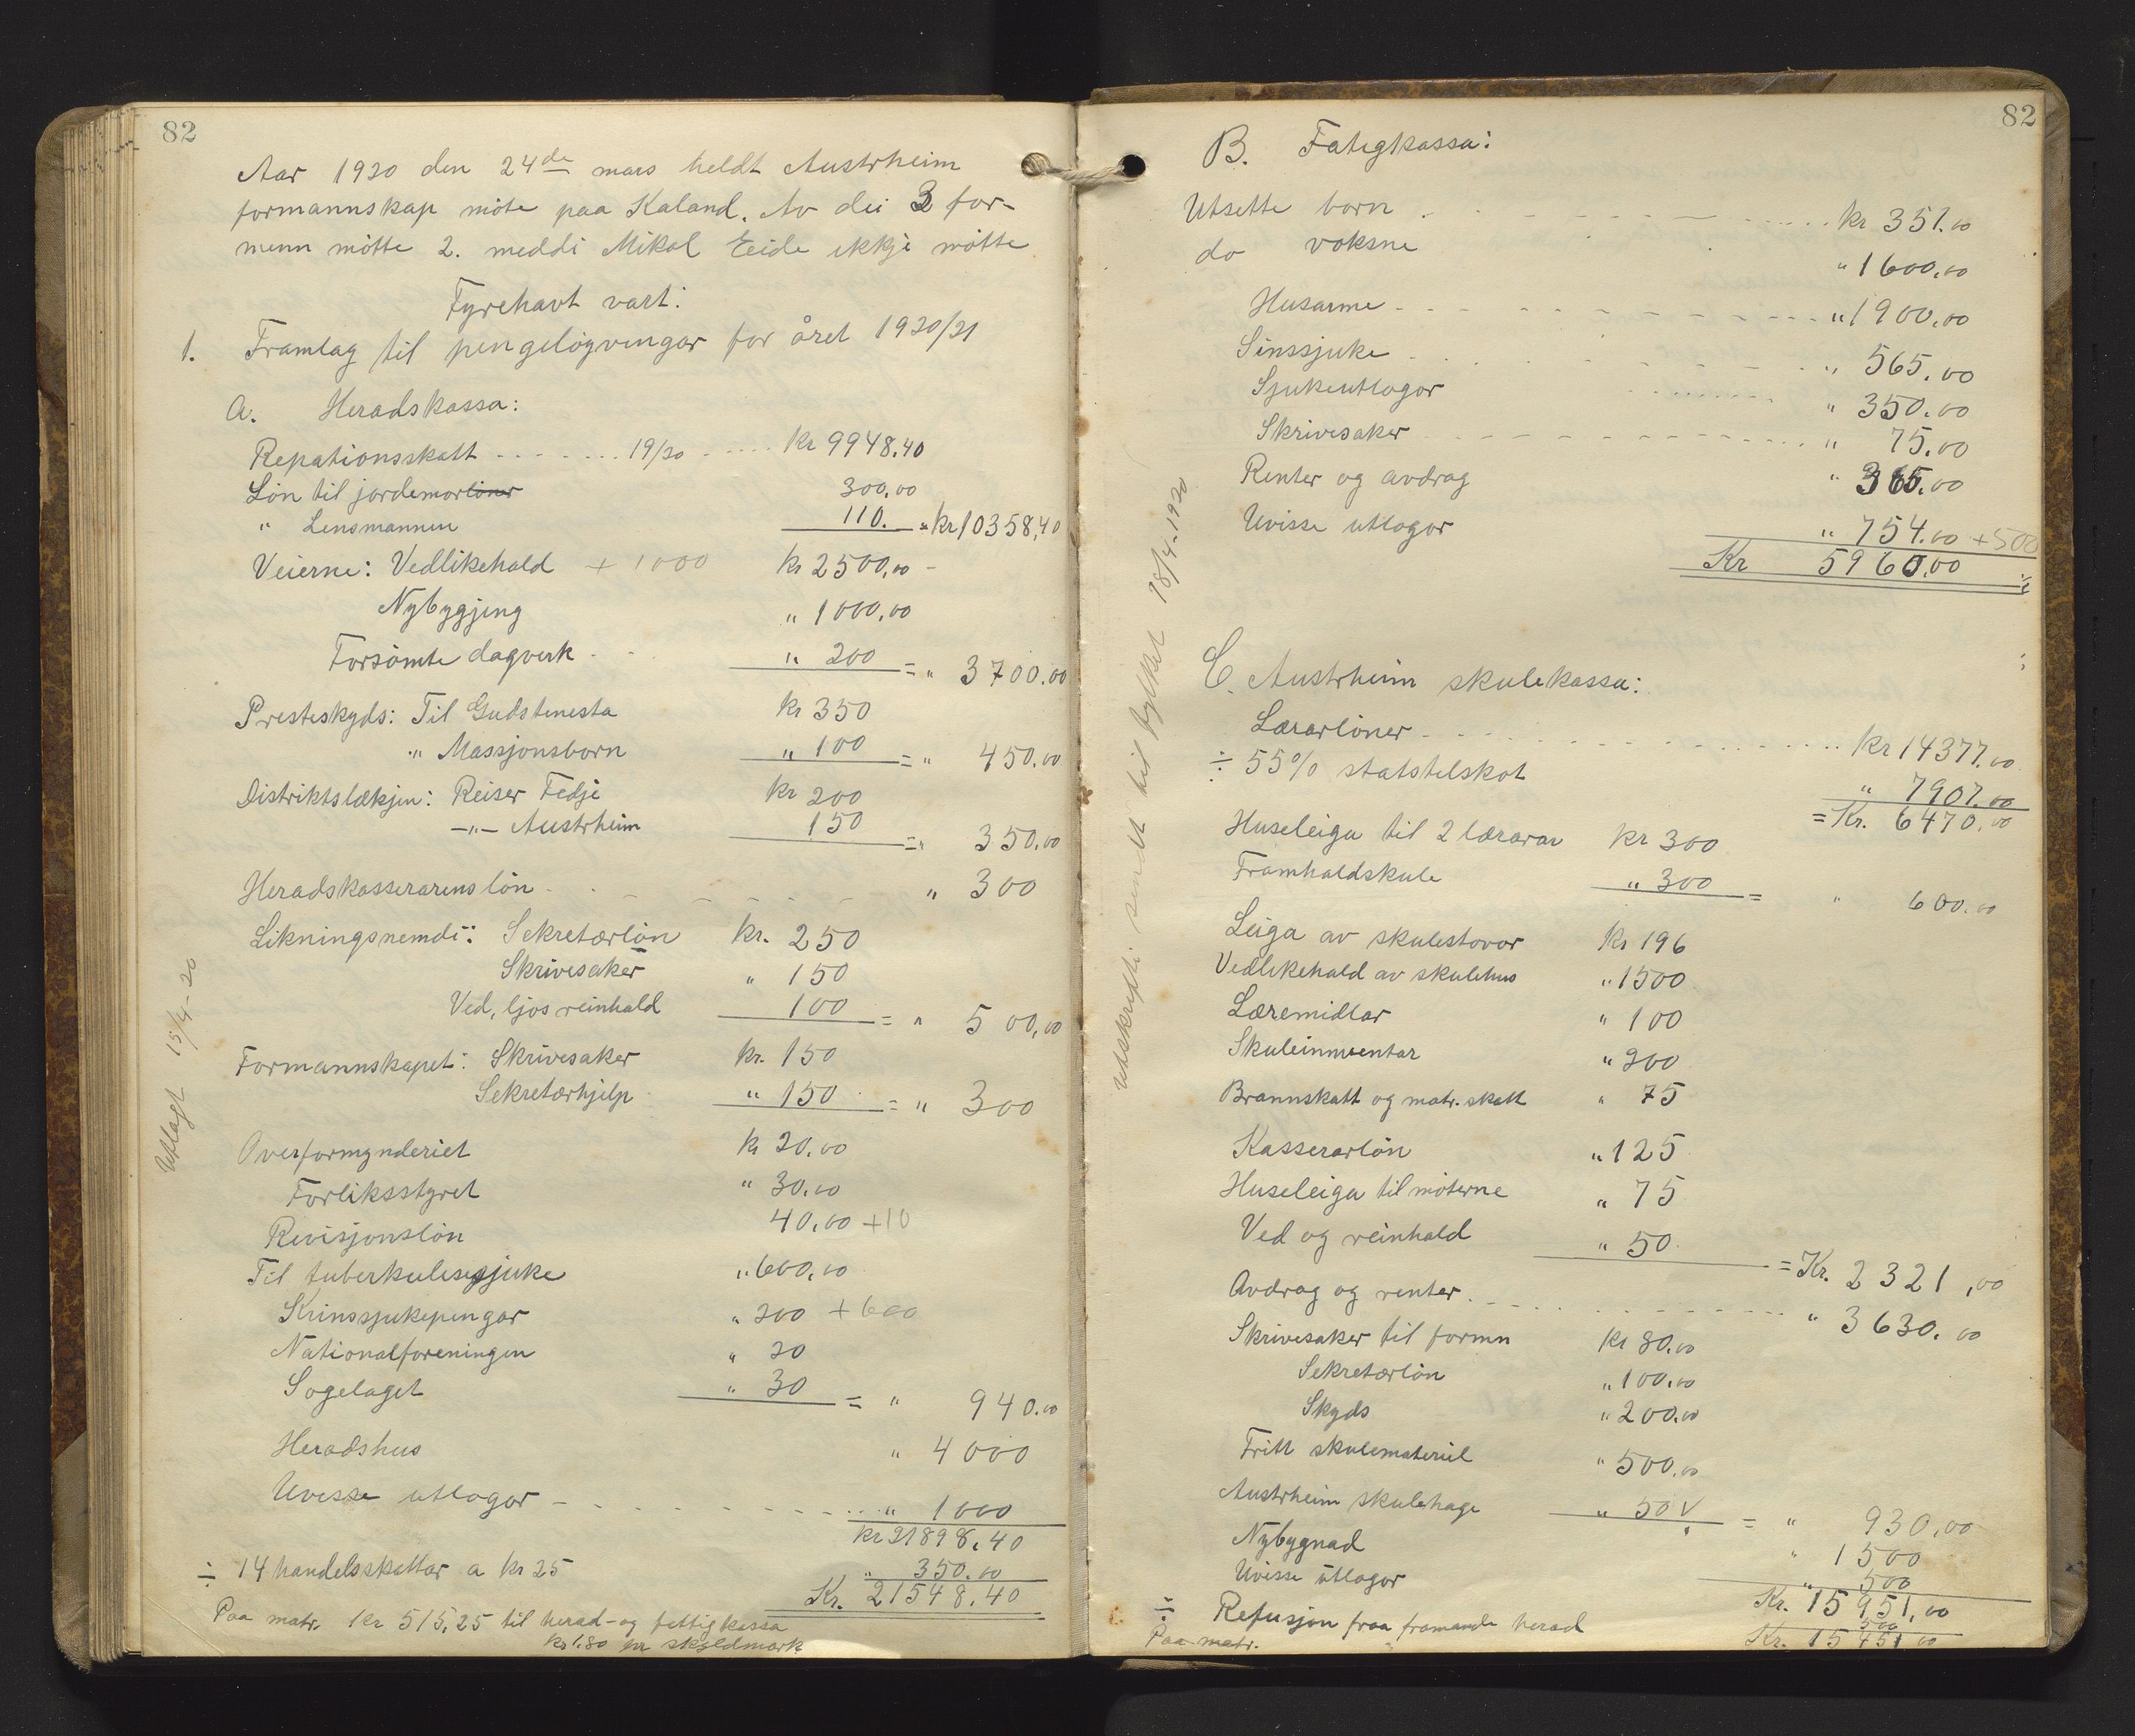 82
Aar 1920 den 24de mars heldt Austrheim
formannskap möte paa Kaland. Av dei 3 for-
menn mötte 2. meddi Mikal Eeide ikkje mötte
Fyrehavt vart:
1. Framlag til pengelöyvingar for året 1920/21
A. Heradskassa:
Repationsskatt 19/20 kr 9948.40
Lön til jordemorlöner 300,00
" Lensmannen 110. " kr 10358,40
Veierne: Vedlikehald + 1000 kr 2500,00 -
Nybyggjing " 1000,00
Forsömte dagverk " 200 = " 3700.00
Presteskyds: Til Gudstenesta kr 350
" Massjonsborn " 100 = " 450.00
Distriktslækjen: Reiser Fedje kr 200
-"- Austrheim 150 = " 350,00
Heradskasserarens lön " 300
Likningsnemdi: Sekretærlön kr. 250
Skrivesaker " 150
Ved, ljos reinhald 100 = " 500,00
Formannskapet: Skrivesaker kr. 150
Sekretærhjelp " 150 = " 300
Overformynderiet kr 20,00
Forliksstyret " 30,00
Revisjonslön 40,00 +10
Til tuberkulesesjuke " 600,00
Krinssjukepengar " 200 + 600
Nationalforeningen " 20
Sogelaget " 30 = " 940.00
Heradshus " 4000
Uvisse utlogor " 1000
kr 21898,40
÷ 14 handelsskattar a kr 25 " 350.00
Kr. 21548.40
Paa matr. kr 515,25 til herad- og fattigkassa
kr 1.80 pr skyldmark
Utlagt 15/4-20
82
B. Fatigkassa:
Utsette born kr 351.00
do voksne " 1600,00
Husarme " 1900,00
Sinssjuke " 565,00
Sjukeutlogor " 350.00
Skrivesaker " 75.00
Renter og avdrag " 365.00
Uvisse utlogor " 754.00 +500
Kr 5960,00
Utskrift sendt til fylket 18/4-1920
C. Austrheim skulekassa:
Lærarlöner kr 14377.00
÷ 55% statstilskot " 7907.00
= Kr. 6470.00
Huseleiga til 2 lærarar kr 300
Framhaldskule " 300 = " 600.00
Leiga av skulestovor kr 196
Vedlikehald av skulehus " 1500
Læremidlar " 100
Skuleinnventar " 200
Brannskatt og matr. skatt " 75
Kasserarlön " 125
Huseleiga til möterne " 75
Ved og reinhald " 50 = Kr. 2321,00
Avdrag og renter " 3630.00
Skrivesaker til formn kr 80.00
Sekretærlön " 100.00
Skyds " 200.00
Fritt skulemateriel " 500.00
Austrheim skulehage " 50 V = " 930,00
Nybygnad " 1500
Uvisse utlogor " 500
Kr. 15951,00
÷ Refusjon fraa framande herad 500
Paa matr. Kr. 15451 00